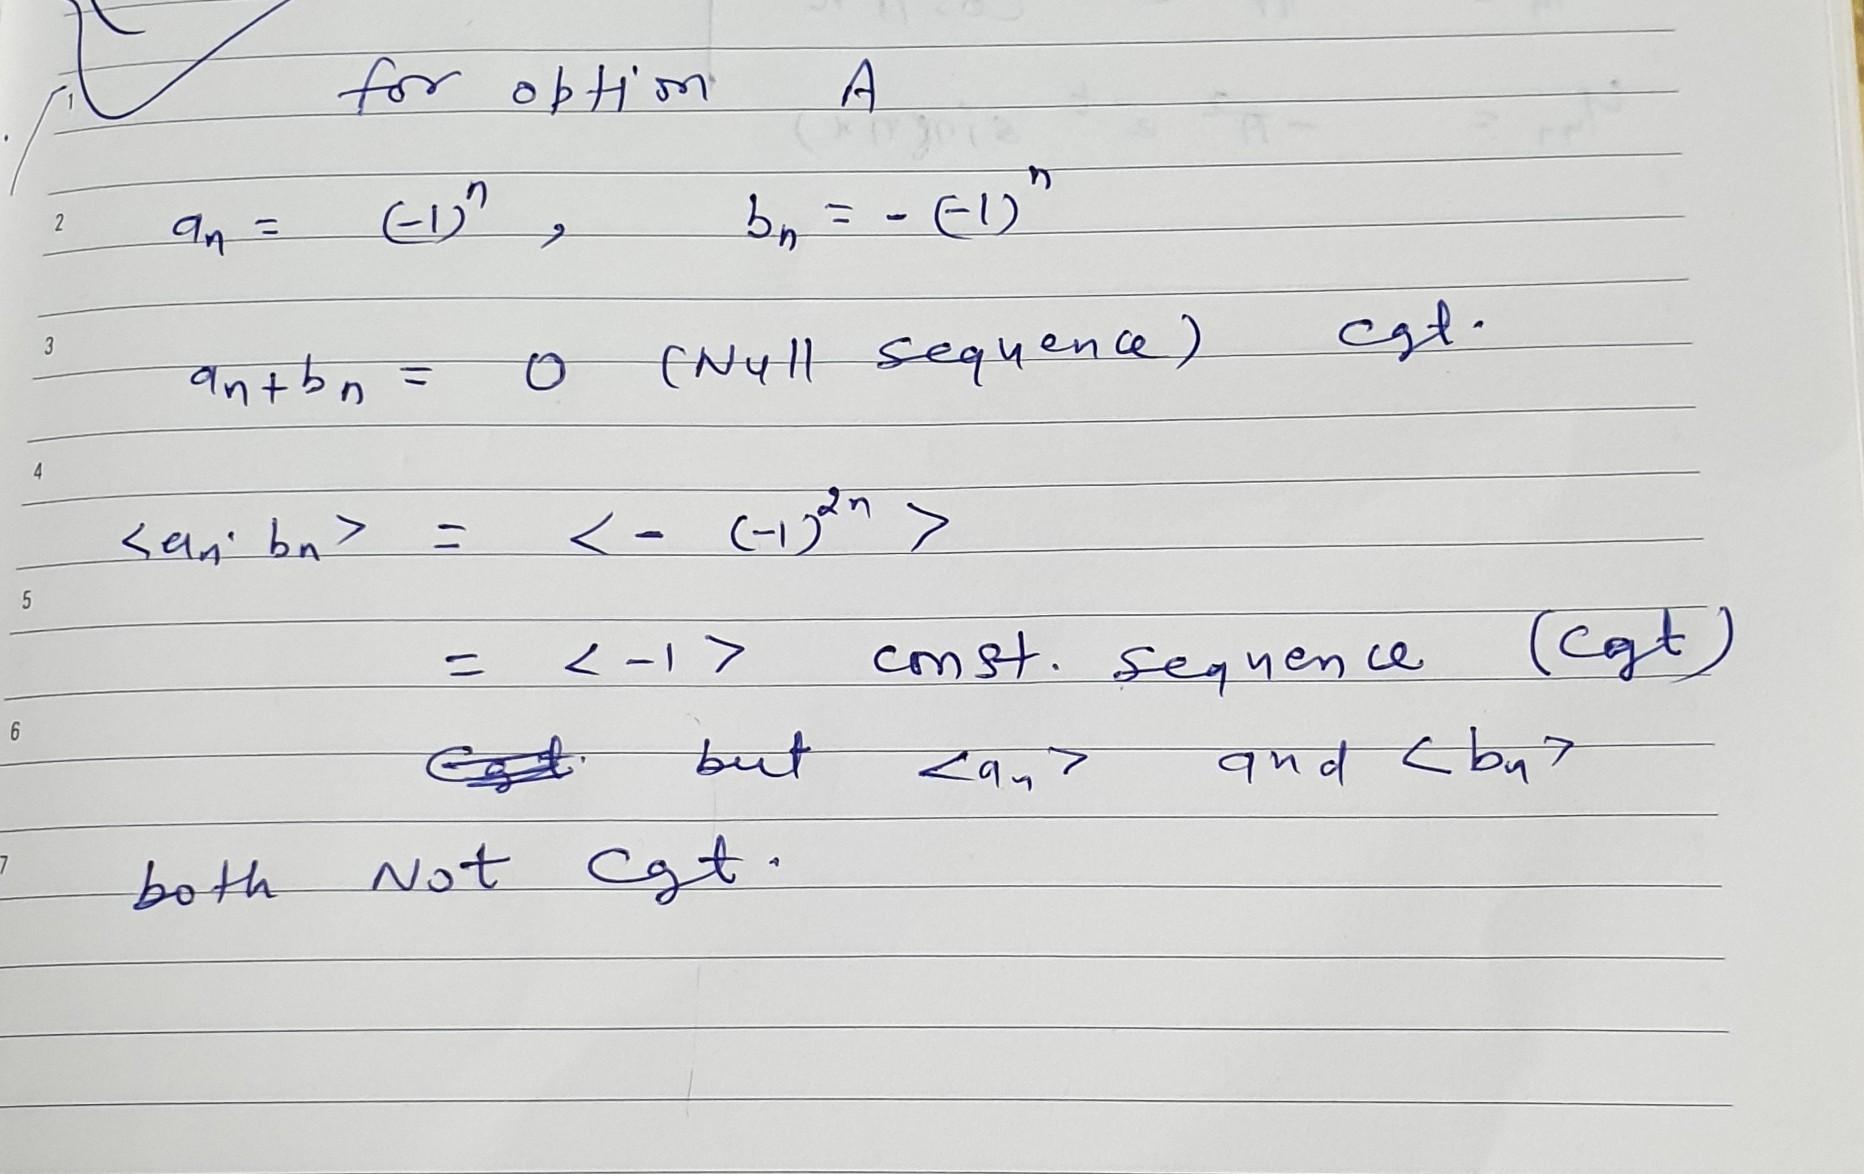 for option A
1
2 aₙ = (-1)ⁿ , bₙ = - (-1)ⁿ
3 aₙ + bₙ = 0 (Null sequence) Cgt.
4
<aₙ. bₙ> = < - (-1)²ⁿ >
5
= < -1 > const. sequence (Cgt)
6 but <aₙ> and <bₙ>
7 both Not Cgt.